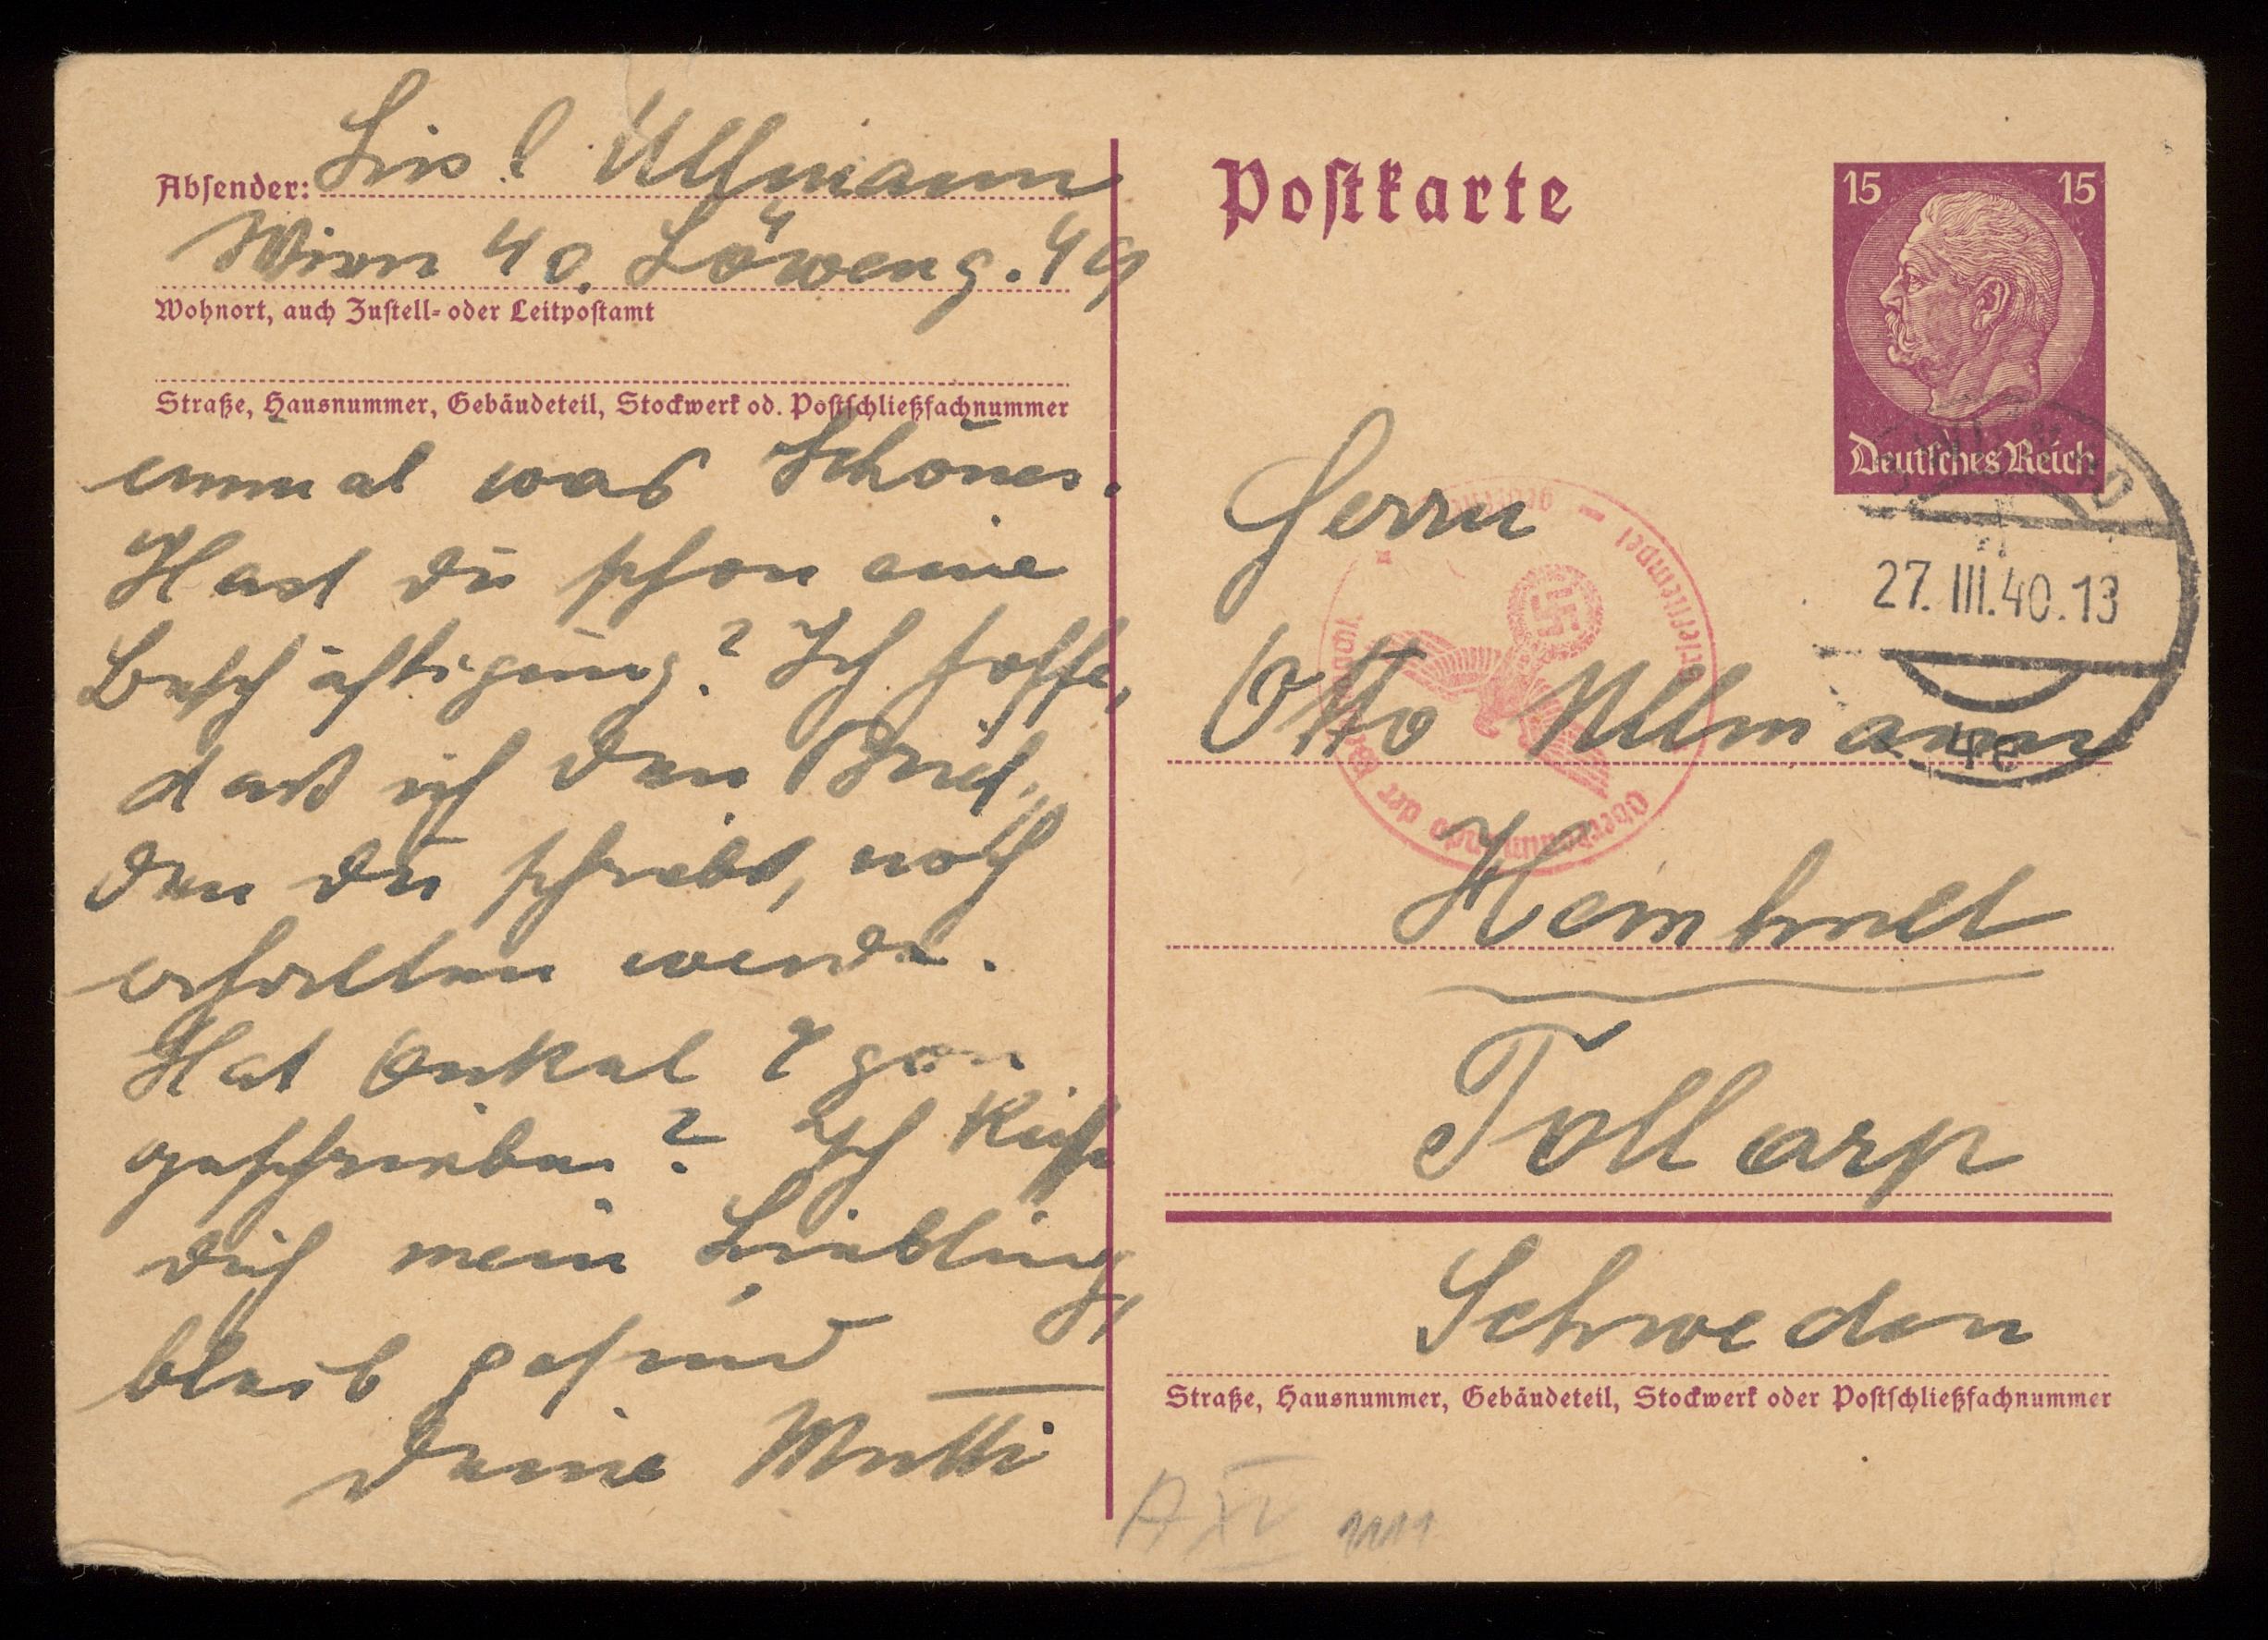 Absender: Lisl Ullmann
Wien 40. Löweng. 49
Wohnort, auch Zustell- oder Leitpostamt
Straße, Hausnummer, Gebäudeteil, Stockwerk od. Postschließfachnummer
einmal was Schönes.
Hast du schon eine
Beschäftigung? Ich hoffe,
daß ich den Brief,
den du schriebst, noch
erhalten werde.
Hat Onkel Egon
geschrieben? Ich küsse
dich mein Liebling,
bleib gesund
Deine Mutti
Postkarte
15 15
Deutsches Reich
27.III.40.13
40
Herrn
Otto Ullmann
Tollarp
Schweden
Straße, Hausnummer, Gebäudeteil, Stockwerk oder Postschließfachnummer
Oberkommando der
Briefstempel
A XV